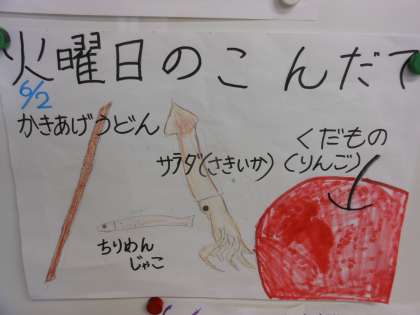 火曜日のこんだて
6/2
かきあげうどん
サラダ(さきいか)
くだもの
(りんご)
ちりめん
じゃこ